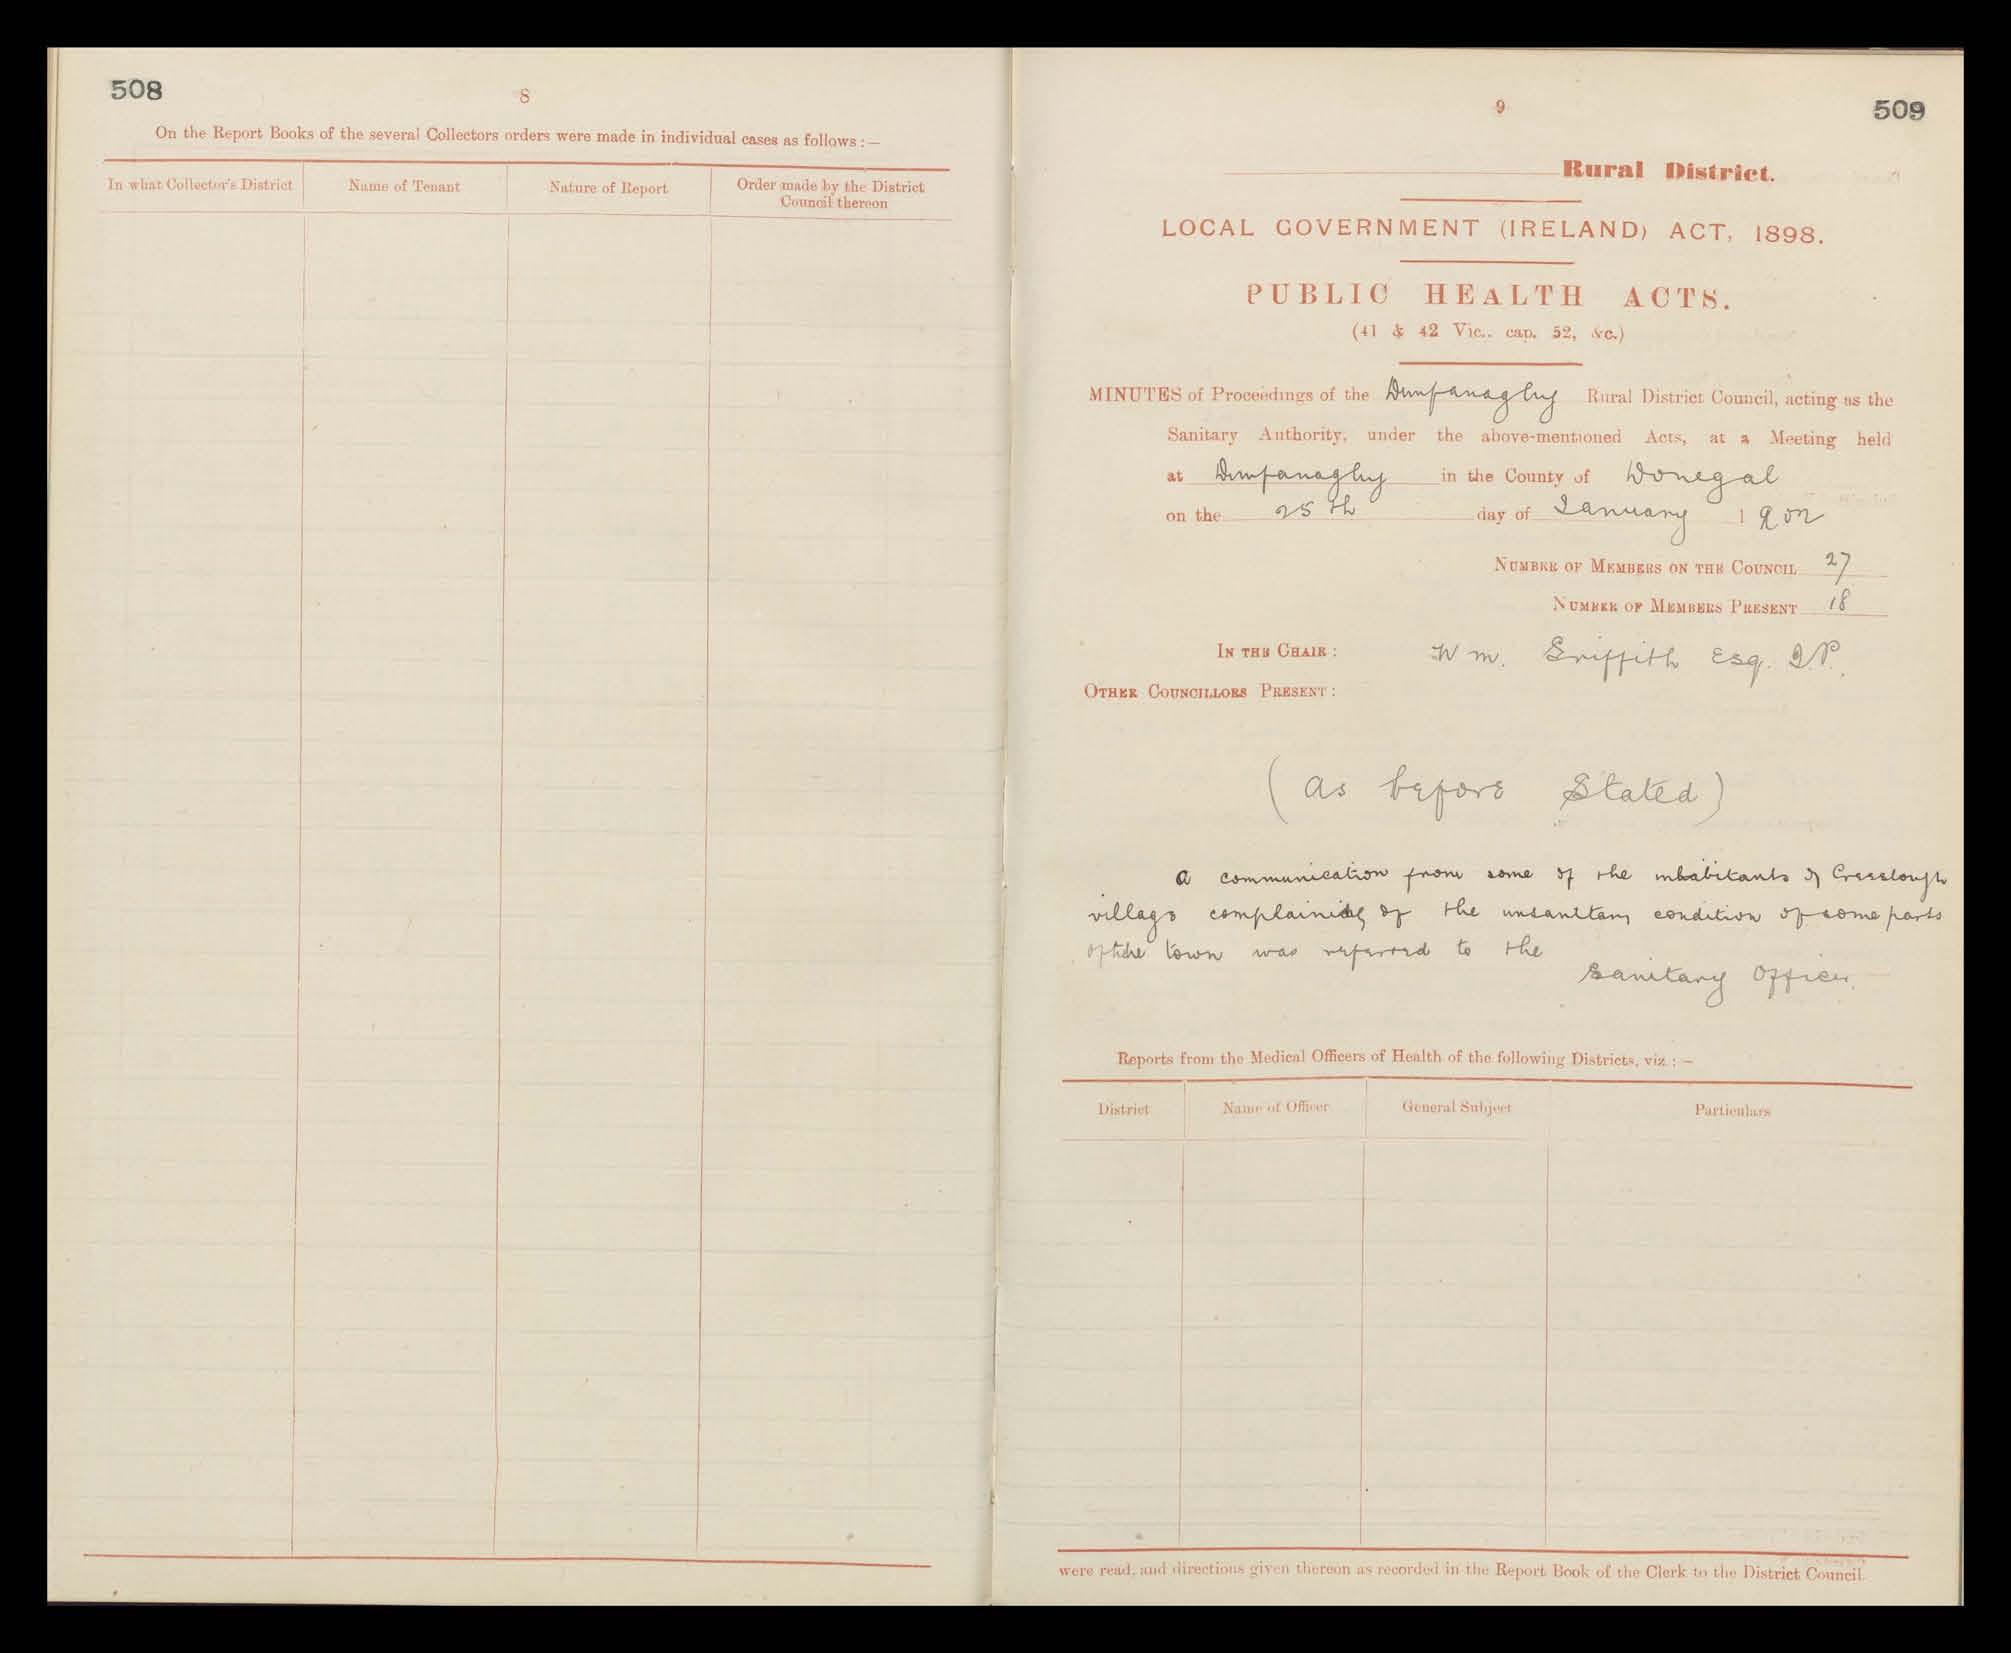 508
8
On the Report Books of the several Collectors orders were made in individual cases as follows :—
In what Collector's District
Name of Tenant
Nature of Report
Order made by the District
Council thereon
9
509
Rural District.
LOCAL GOVERNMENT (IRELAND) ACT, 1898.
PUBLIC HEALTH ACTS.
(41 & 42 Vic., cap. 52, &c.)
MINUTES of Proceedings of the Dunfanaghy Rural District Council, acting as the
Sanitary Authority, under the above-mentioned Acts, at a Meeting held
at Dunfanaghy in the County of Donegal
on the 25th day of January 1902
NUMBER OF MEMBERS ON THE COUNCIL 27
NUMBER OF MEMBERS PRESENT 18
IN THE CHAIR : Wm. Griffith Esq. J.P.
OTHER COUNCILLORS PRESENT :
(as before Stated)
A communication from some of the inhabitants of Creeslough
village complaining of the unsanitary condition of some parts
of the town was referred to the
Sanitary Officer.
Reports from the Medical Officers of Health of the following Districts, viz. :—
District
Name of Officer
General Subject
Particulars
were read, and directions given thereon as recorded in the Report Book of the Clerk to the District Council.